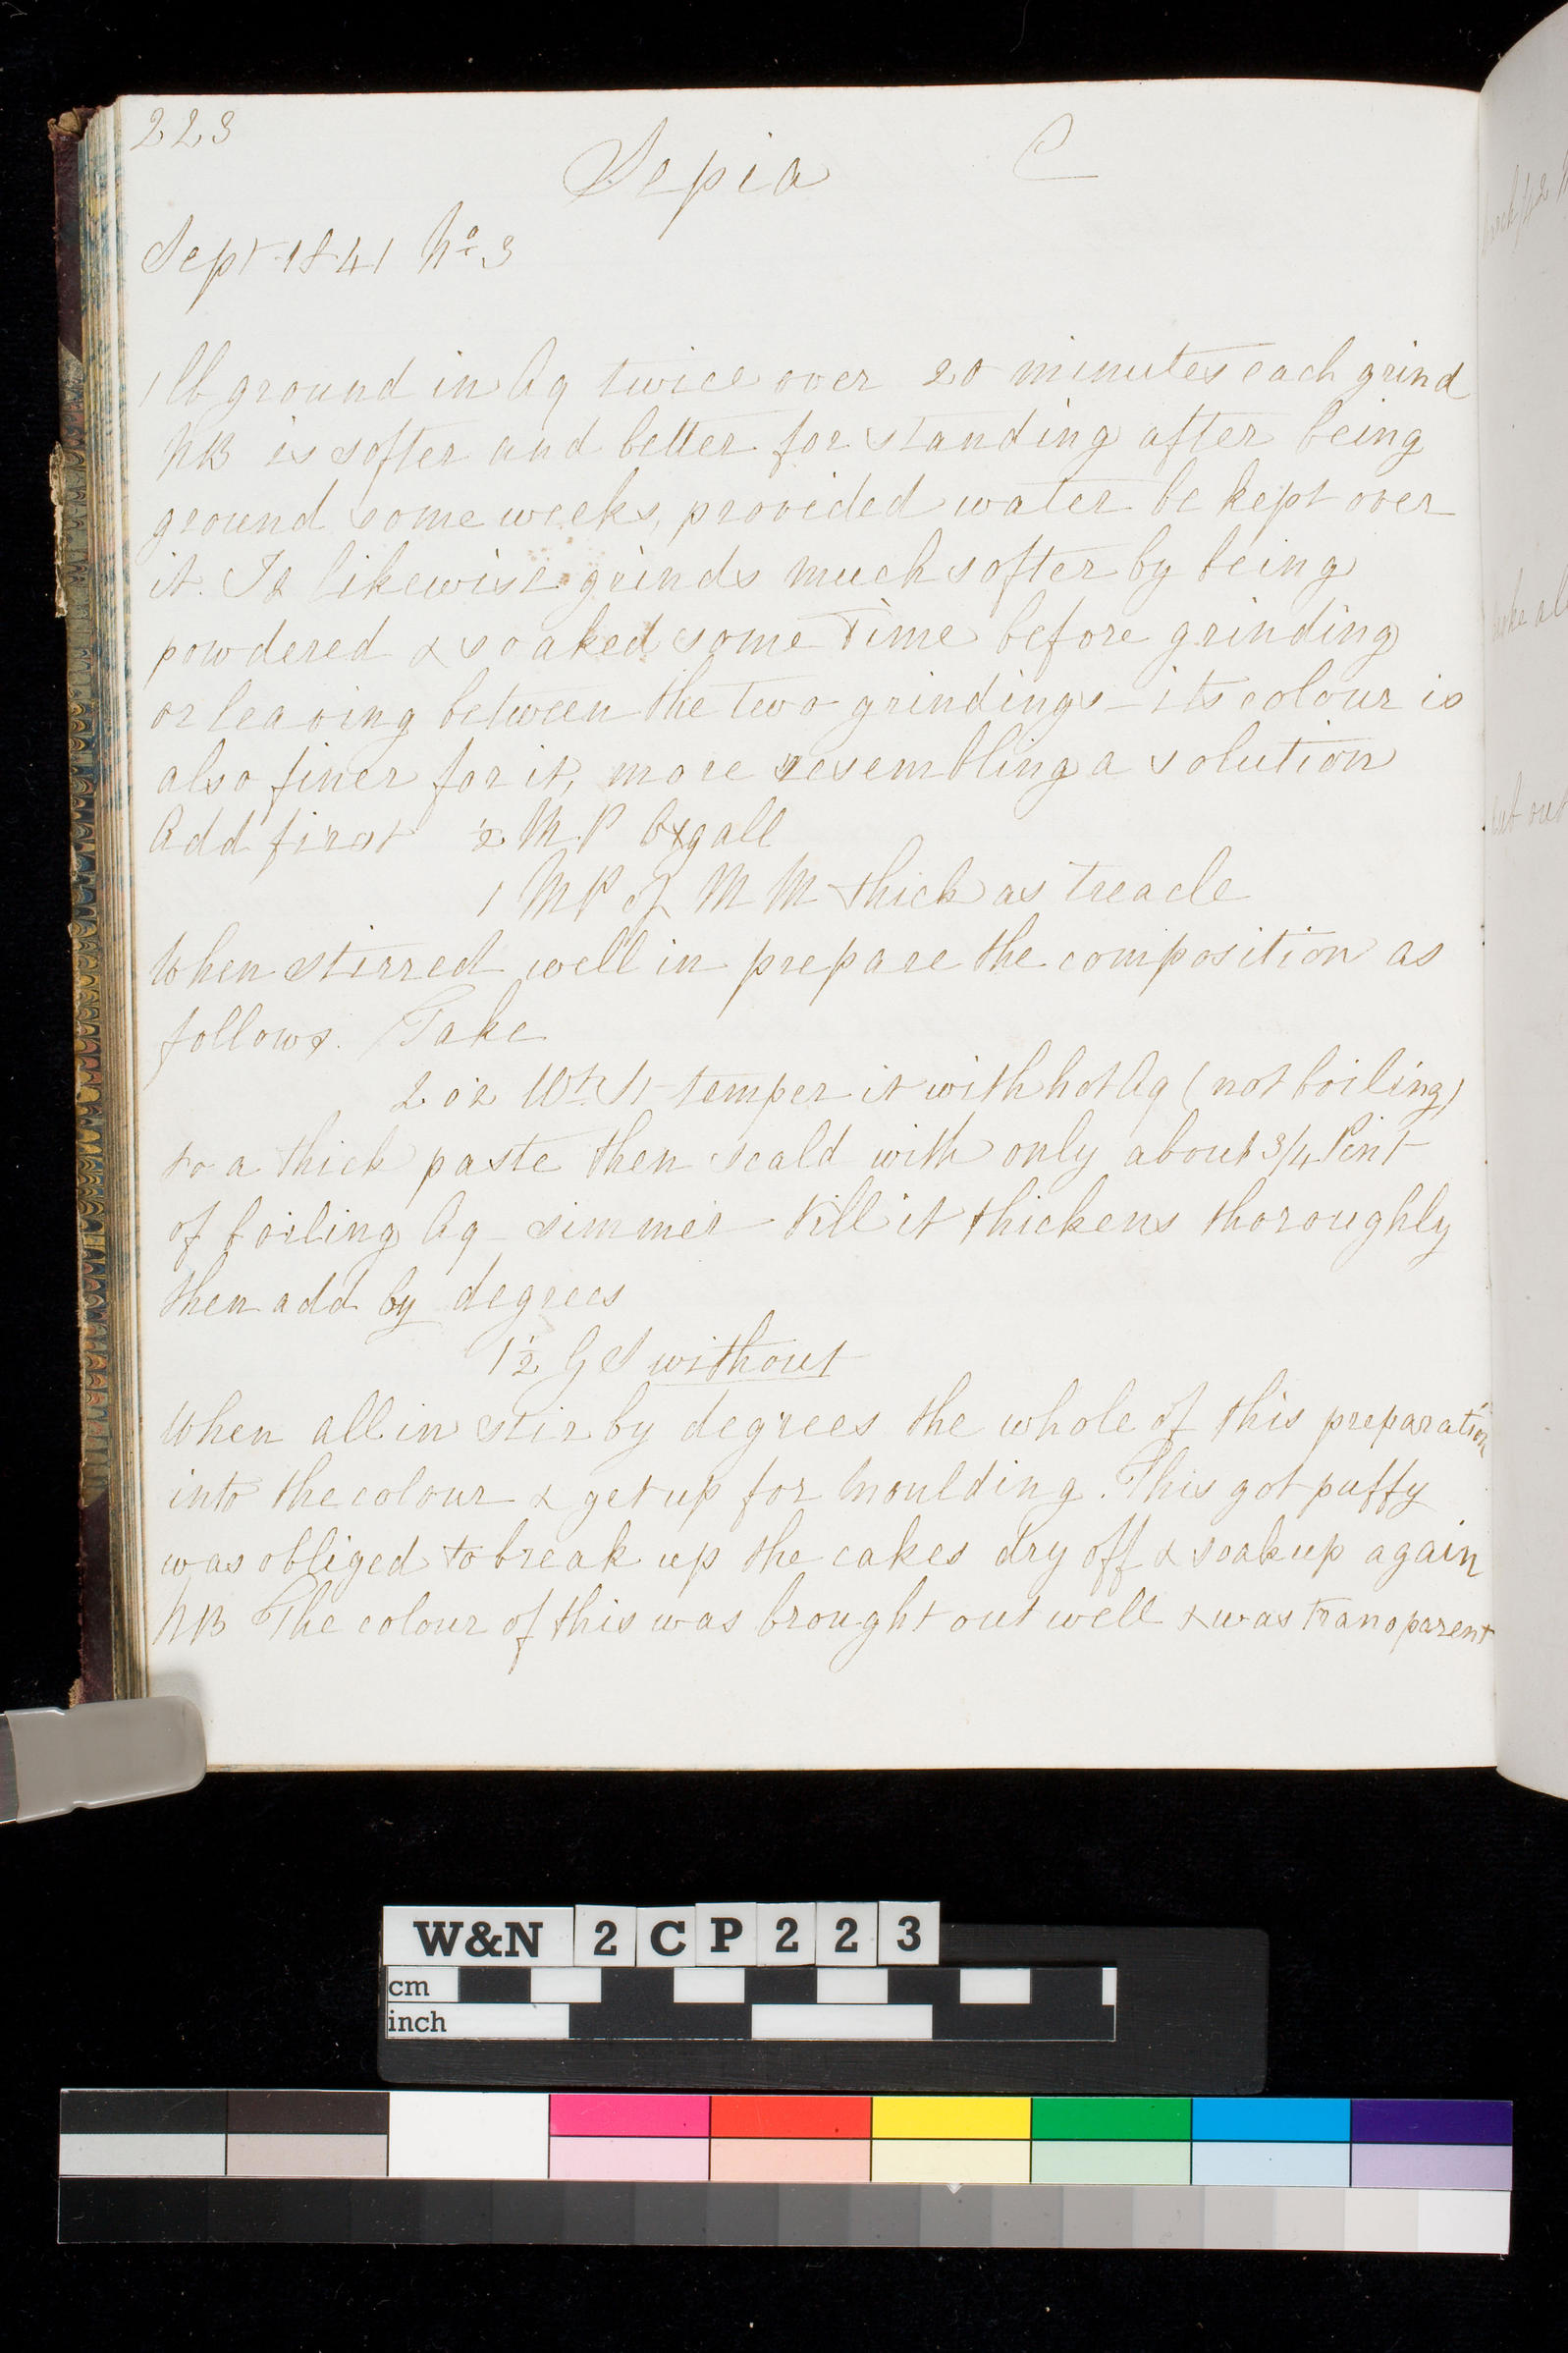 223
Sepia C
Sept 1841 No 3
1 lb ground in Aq twice over 20 minutes each grind
NB is softer and better for standing after being
ground some weeks, provided water be kept over
it. It likewise grinds much softer by being
powdered & soaked some time before grinding
or leaving between the two grindings - its colour is
also finer for it, more resembling a solution
Add first ½ MP Oxgall
1 MP of MM thick as treacle
When stirred well in prepare the composition as
follows. Take
2 oz Wt St temper it with hot Aq (not boiling)
to a thick paste then scald with only about 3/4 Pint
of boiling Aq - simmer till it thickens thoroughly
then add by degrees
1½ GS without
When all in stir by degrees the whole of this preparation
into the colour & get up for moulding. This got puffy
was obliged to break up the cakes dry off & soak up again
NB The colour of this was brought out well & was transparent
W&N 2CP223
cm
inch